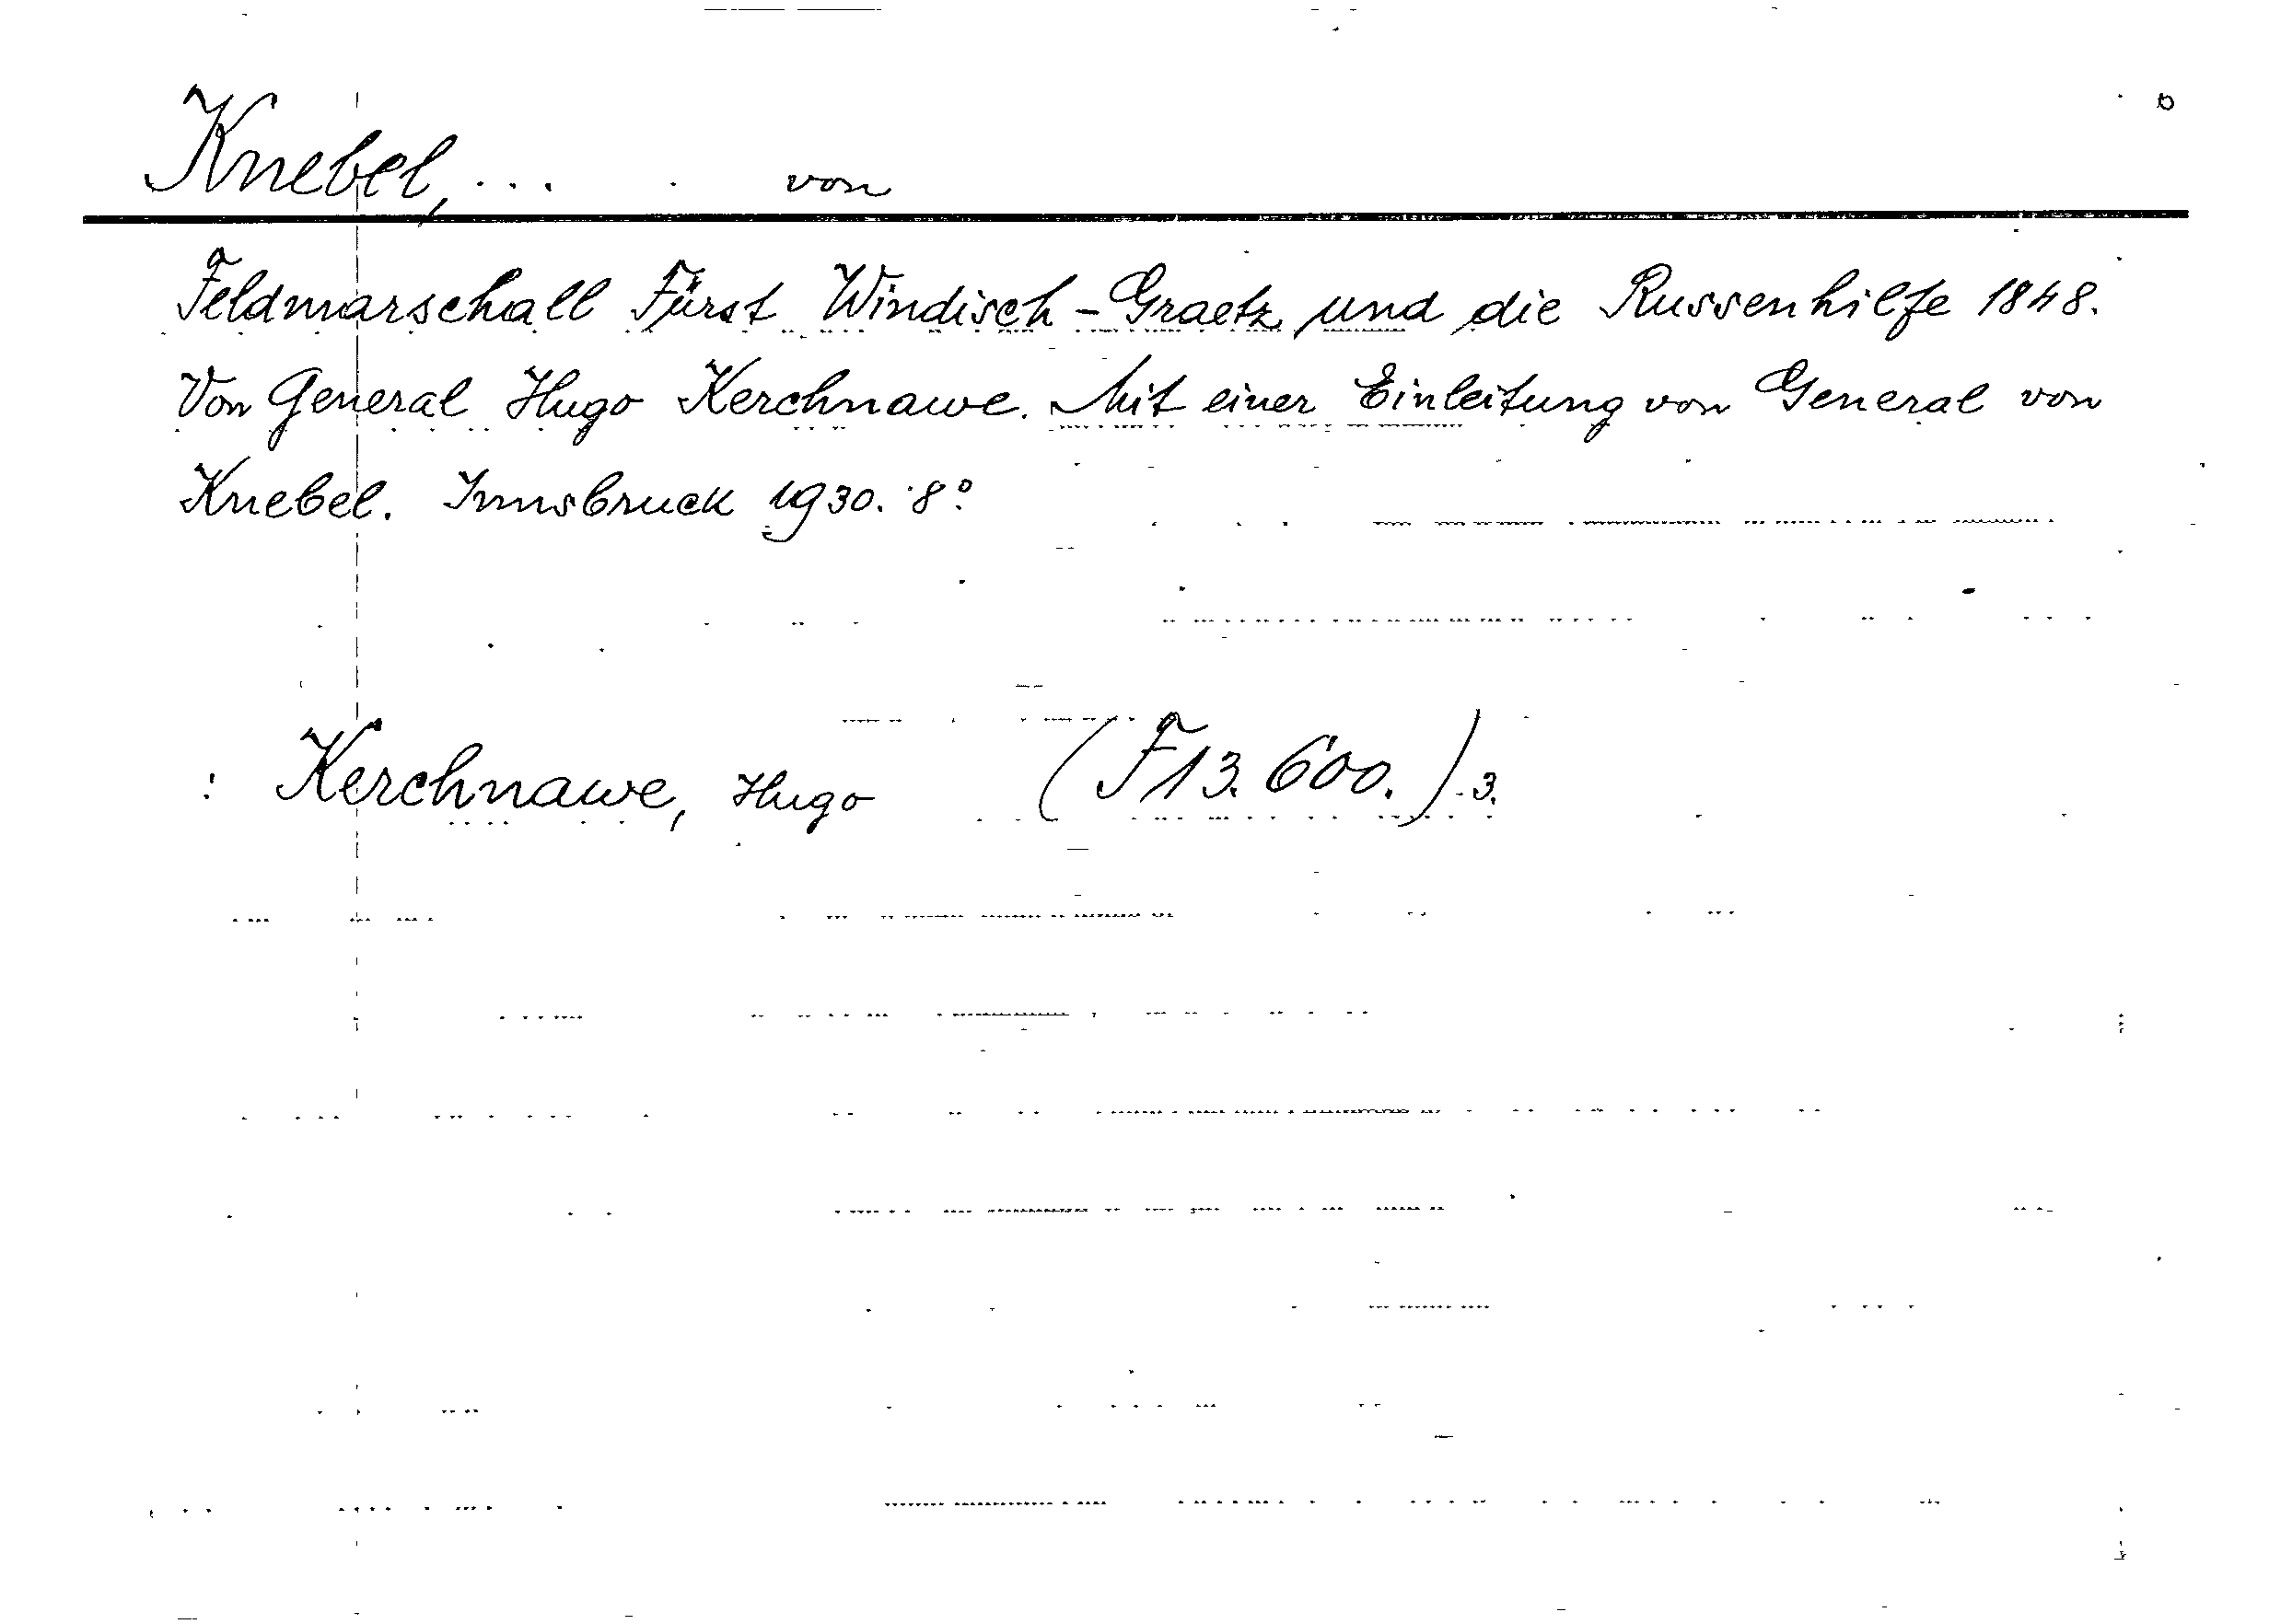 Knebel, ... von
Feldmarschall Fürst Windisch-Graetz und die Russenhilfe 1848.
Von General Hugo Kerchnawe. Mit einer Einleitung von General von
Knebel. Innsbruck 1930. 8°
: Kerchnawe, Hugo (F13.600.) 3.